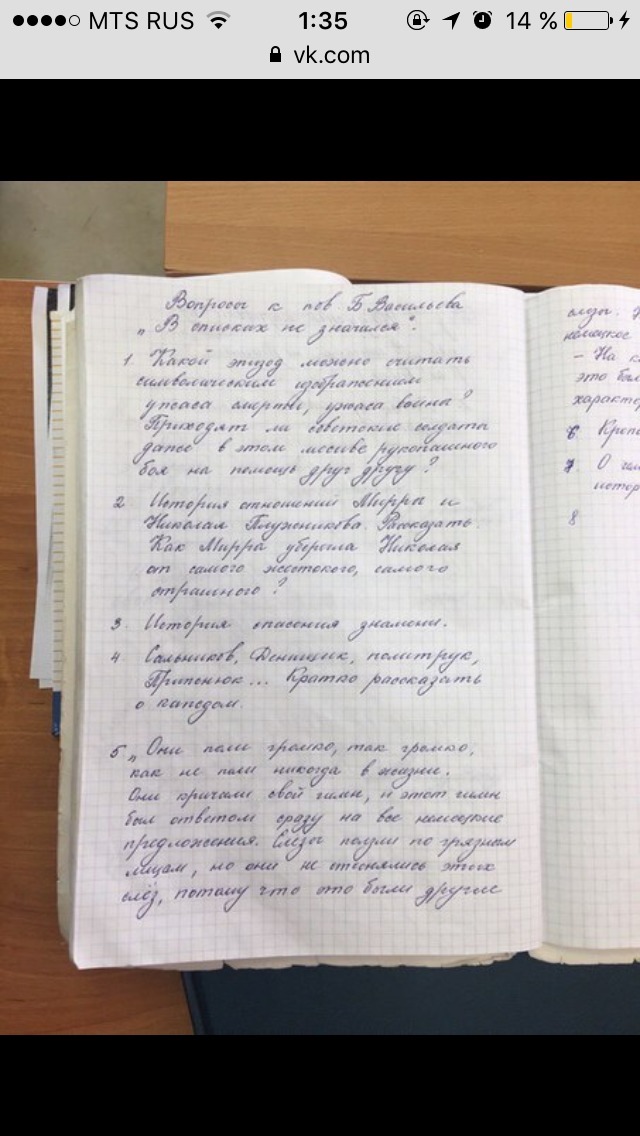 MTS RUS 1:35 14 %
vk.com
Вопросы к пов Б Васильева
„В списках не значился".
1. Какой эпизод можно считать
символическим изображением
ужаса смерти, ужаса войны?
Приходят ли советские солдаты
даже в этом месиве рукопашного
боя на помощь друг другу?
2 История отношений Мирры и
Николая Плужникова. Рассказать.
Как Мирра уберегла Николая
от самого жестокого, самого
страшного?
3. История спасения знамени.
4 Сальников, Денищик, политрук,
Прижнюк... Кратко рассказать
о каждом.
5 „Они пели громко, так громко,
как не пели никогда в жизни.
Они кричали свой гимн, и этот гимн
был ответом сразу на все немецкие
предложения. Слёзы ползли по грязным
лицам, но они не стеснялись этих
слёз, потому что это были другие
слёзы.
немецкое
- На к
это был
характер
6 Креп
7. О чём
истор
8